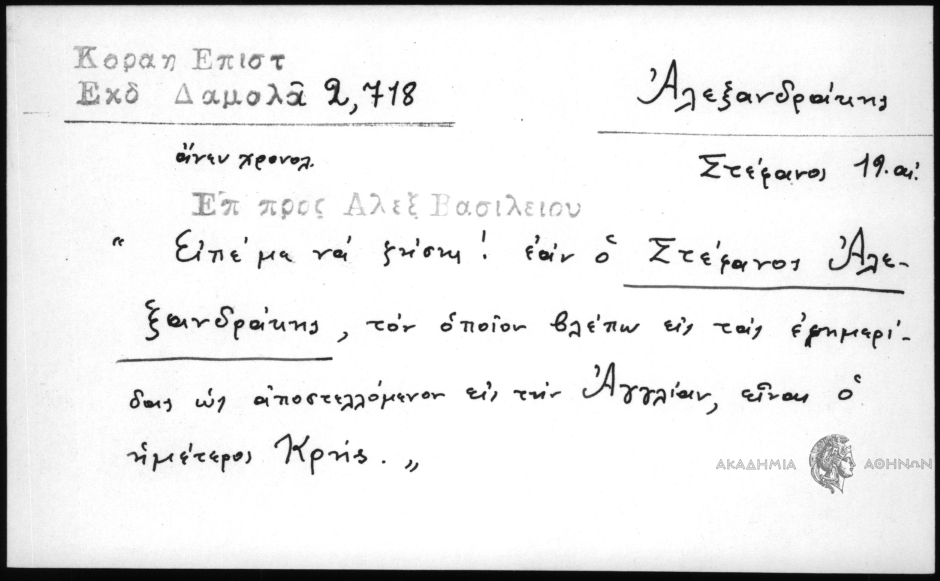 Κοραη Επιστ
Εκδ Δαμαλᾶ 2,718
Ἀλεξανδράκης
ἄνευ χρονολ.
Στέφανος 19. αἰ.
Επ προς Αλεξ Βασιλειου
“ Εἰπέ με νά ζήσῃς! ἐάν ὁ Στέφανος Ἀλε-
ξανδράκης, τόν ὁποῖον βλέπω εἰς τάς ἐφημερί-
δας ὡς ἀποστελλόμενον εἰς τήν Ἀγγλίαν, εἶναι ὁ
ἡμέτερος Κρής. „
ΑΚΑΔΗΜΙΑ ΑΘΗΝΩΝ